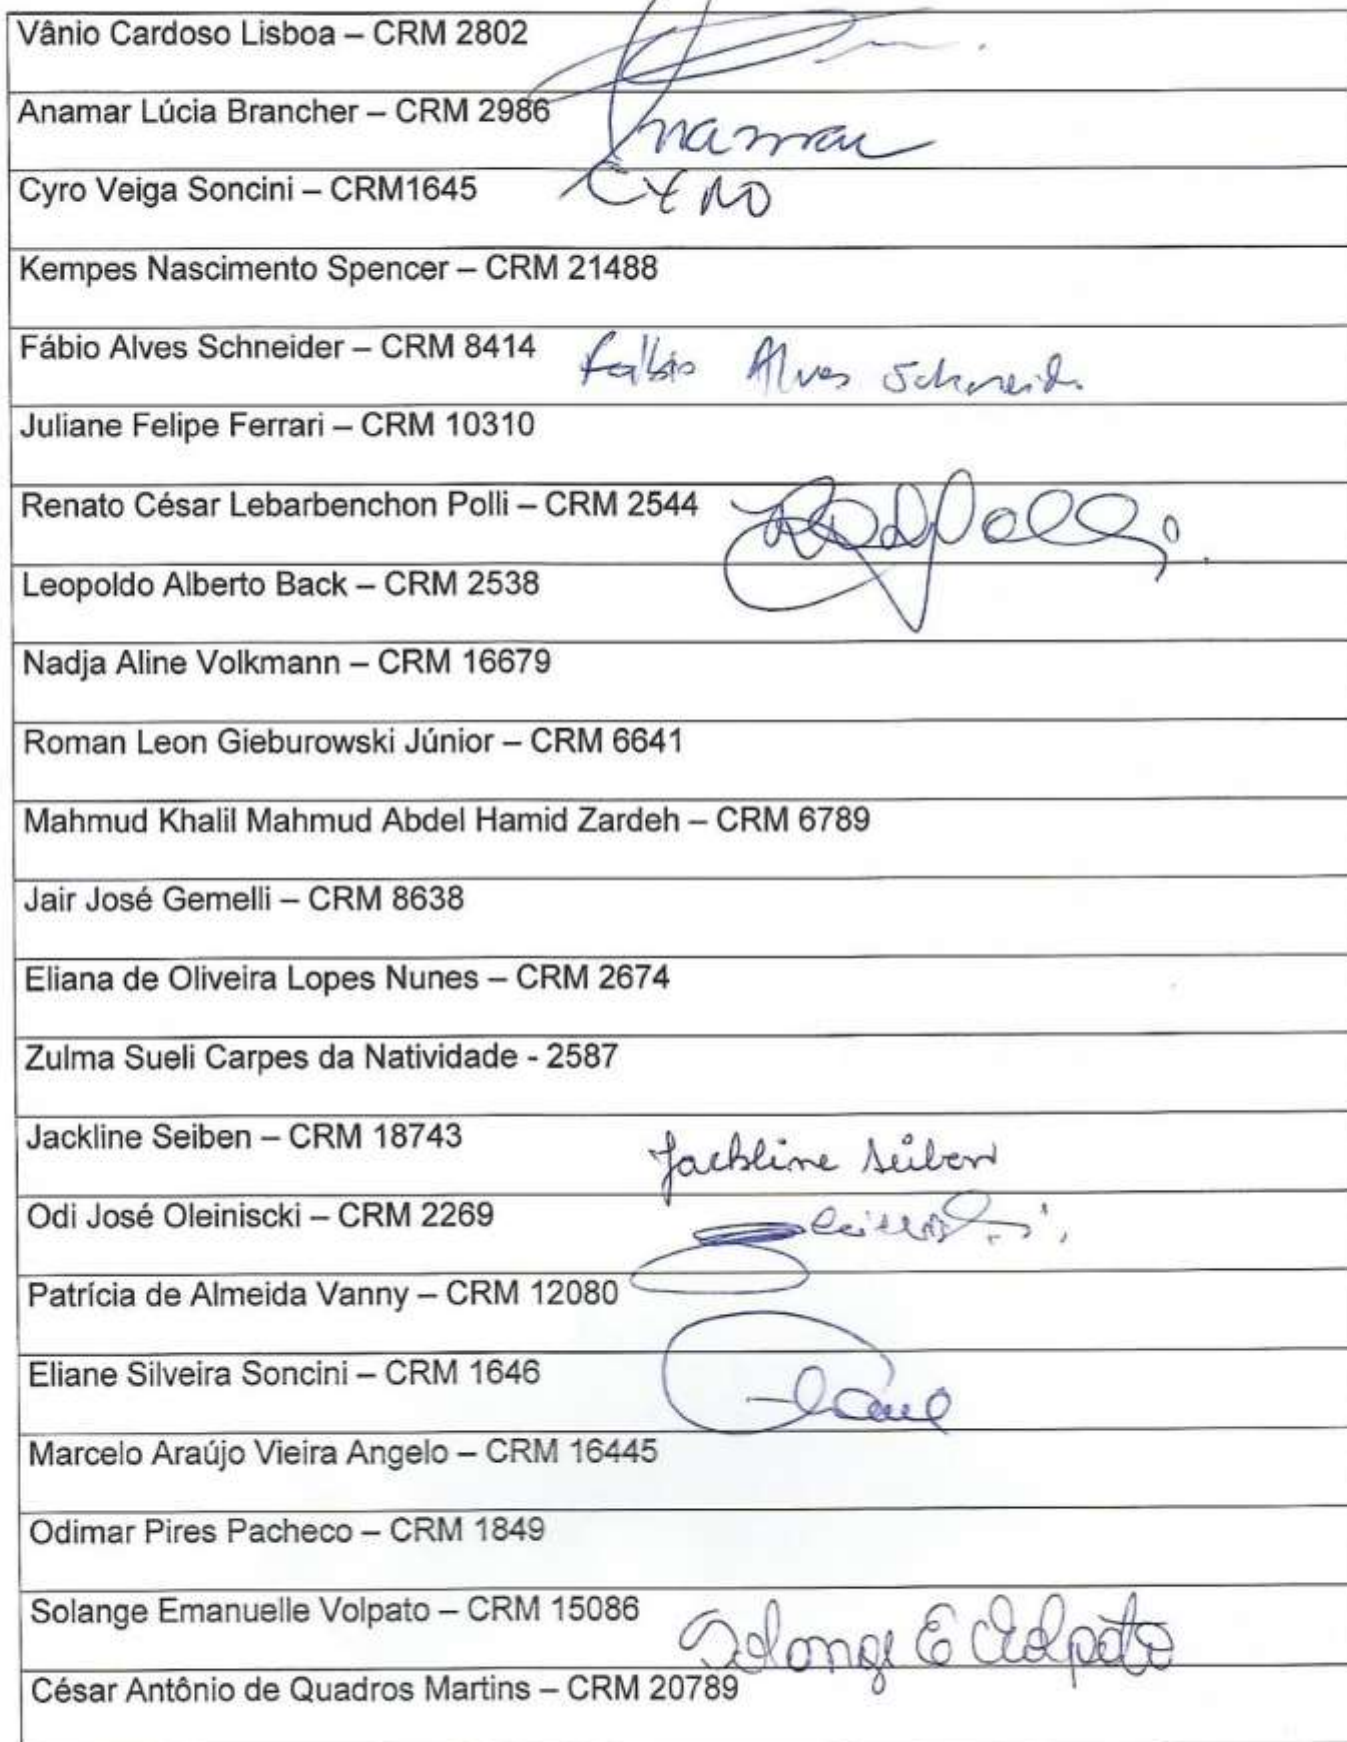 Vânio Cardoso Lisboa – CRM 2802
Anamar Lúcia Brancher – CRM 2986
Anamar
Cyro Veiga Soncini – CRM1645 CYRO
Kempes Nascimento Spencer – CRM 21488
Fábio Alves Schneider – CRM 8414 Fábio Alves Schneider
Juliane Felipe Ferrari – CRM 10310
Renato César Lebarbenchon Polli – CRM 2544
Leopoldo Alberto Back – CRM 2538
Nadja Aline Volkmann – CRM 16679
Roman Leon Gieburowski Júnior – CRM 6641
Mahmud Khalil Mahmud Abdel Hamid Zardeh – CRM 6789
Jair José Gemelli – CRM 8638
Eliana de Oliveira Lopes Nunes – CRM 2674
Zulma Sueli Carpes da Natividade - 2587
Jackline Seiben – CRM 18743 Jackline Seiben
Odi José Oleiniscki – CRM 2269
Patrícia de Almeida Vanny – CRM 12080
Eliane Silveira Soncini – CRM 1646
Marcelo Araújo Vieira Angelo – CRM 16445
Odimar Pires Pacheco – CRM 1849
Solange Emanuelle Volpato – CRM 15086 Solange E Volpato
César Antônio de Quadros Martins – CRM 20789